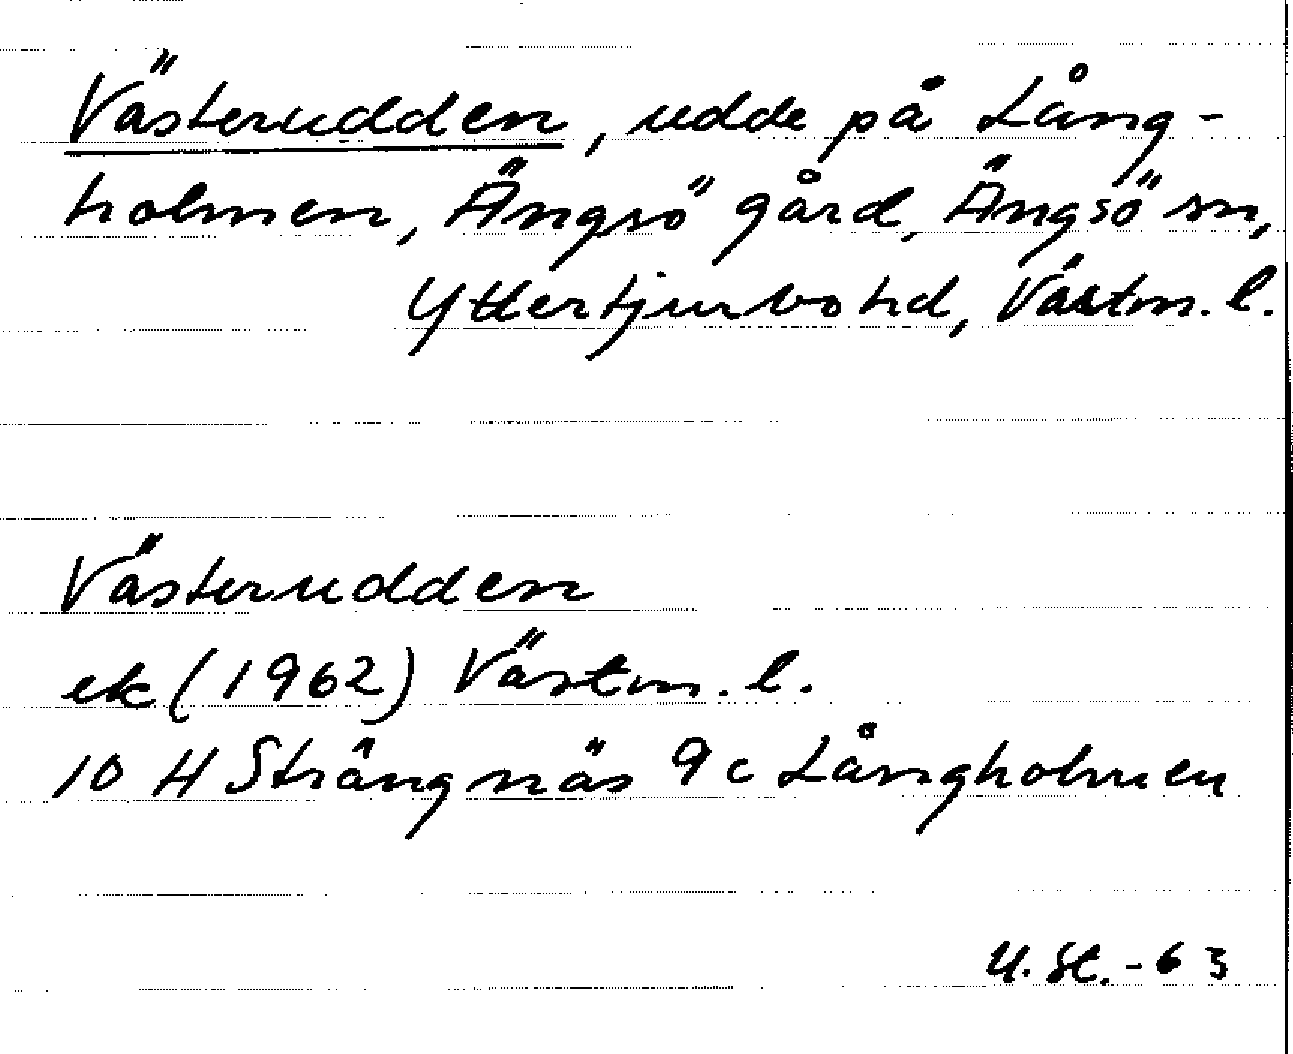 Västerudden, udde på Lång-
holmen, Ängsö gård, Ängsö sn,
Yttertjurbo hd, Västm. l.
Västerudden
ek (1962) Västm. l.
10 H Strängnäs 9 c Långholmen
-63